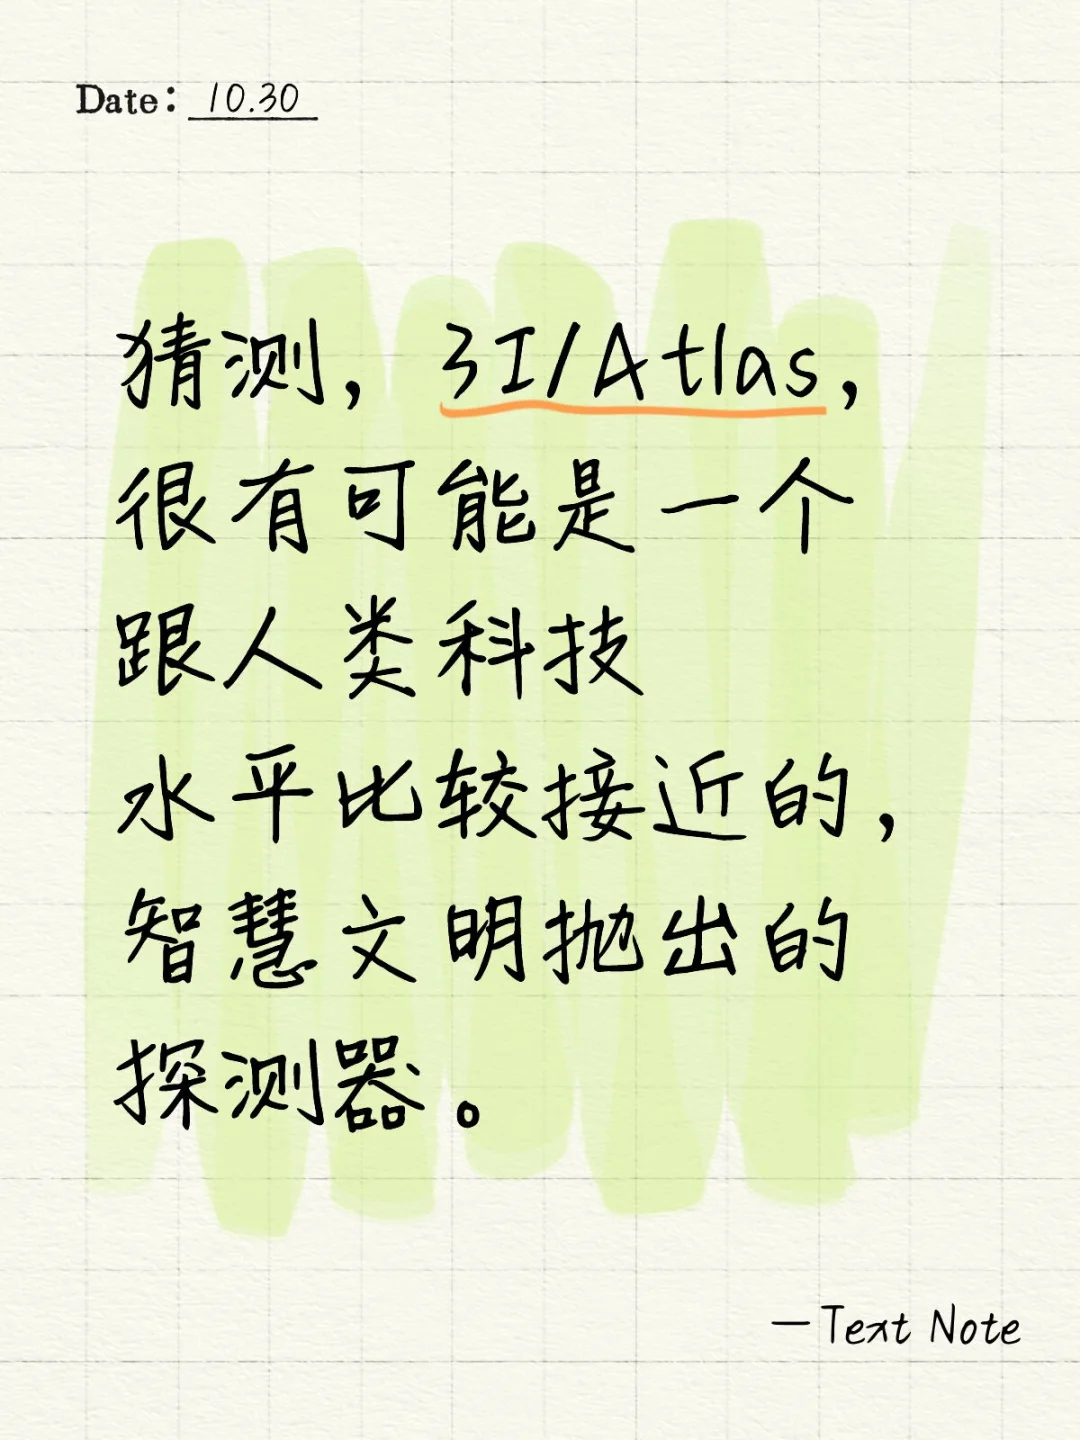 Date: 10.30
猜测，3I/Atlas，
很有可能是一个
跟人类科技
水平比较接近的，
智慧文明抛出的
探测器。
—Text Note